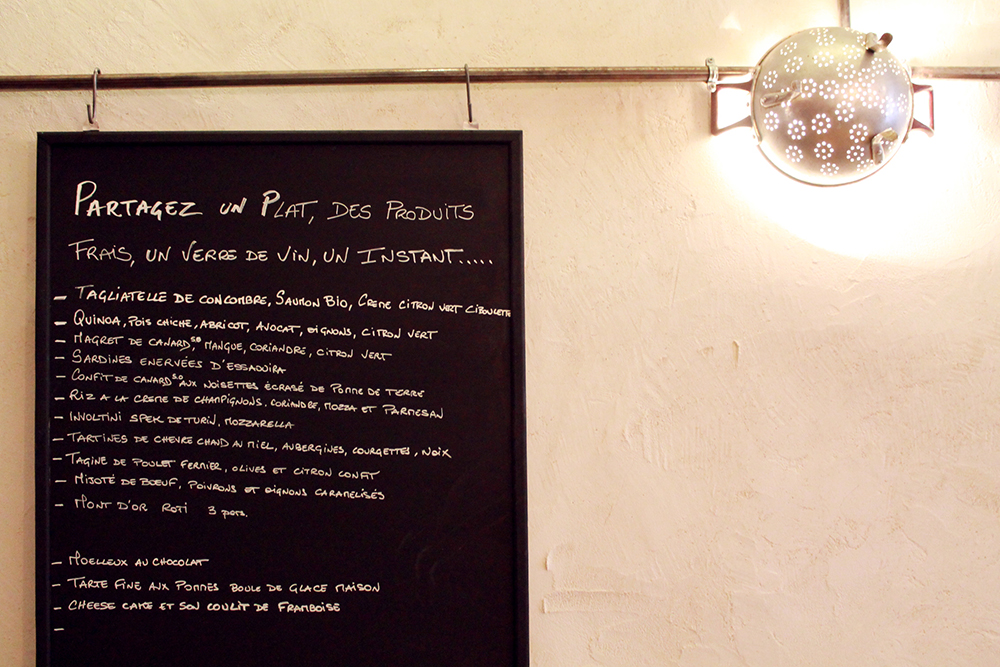 PARTAGEZ UN PLAT, DES PRODUITS
FRAIS, UN VERRE DE VIN, UN INSTANT.....
- TAGLIATELLE DE CONCOMBRE, SAUMON BIO, CREME CITRON VERT CIBOULETTE
- QUINOA, POIS CHICHE, ABRICOT, AVOCAT, OIGNONS, CITRON VERT
- MAGRET DE CANARD S.O, MANGUE, CORIANDRE, CITRON VERT
- SARDINES ENERVÉES D'ESSAOUIRA
- CONFIT DE CANARD S.O AUX NOISETTES ÉCRASÉ DE POMME DE TERRE
- RIZ A LA CREME DE CHAMPIGNONS, CORIANDRE, MOZZA ET PARMESAN
- INVOLTINI SPEK DE TURIN, MOZZARELLA
- TARTINES DE CHEVRE CHAUD AU MIEL, AUBERGINES, COURGETTES, NOIX
- TAGINE DE POULET FERMIER, OLIVES ET CITRON CONFIT
- MIJOTÉ DE BŒUF, POIVRONS ET OIGNONS CARAMELISÉS
- MONT D'OR ROTI 3 pers.
- MOELLEUX AU CHOCOLAT
- TARTE FINE AUX POMMES BOULE DE GLACE MAISON
- CHEESE CAKE ET SON COULIT DE FRAMBOISE
-